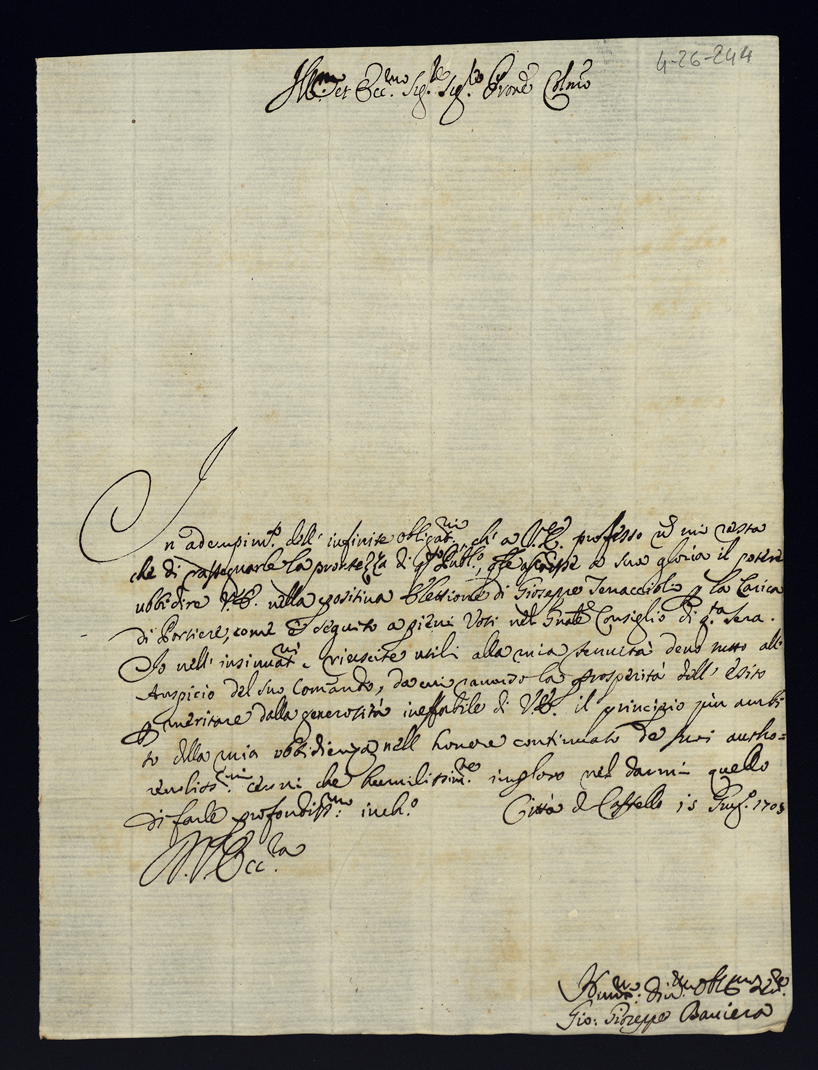 4-26-244
Ill.mo et Ecc.mo Sig.re Sig.re P'rone Col.mo
In adempim.to dell' infinite obligat.ni ch' a V.E. professo n' mi resta
che di rassegnarle la prontezza di q.to Publ.o, a sua gloria il poter
ubbidire V.E. nella positiva Elettione di Gioseppe Tenacciole p la Carica
di Portiere, come è seguito a pieni Voti nel Gn'ale Consiglio di q.ta sera.
Io nell' insinuat.ni riuscite utili alla mia tenuità devo tutto all'
Auspicio del suo Comando, da cui la prosperità dell' esito
p meritare dalla generosità ineffabile di V.E. il principio più ambi-
to della mia obbidienza nell' honore continuato de suoi autho=
revoliss.mi cenni che humilissim.te imploro nel darmi quello
di farle profondiss.mo inch.o Città di Castello 15 1705
D. V. Ecc.za
Hum.mo Div.mo Obl.mo Ser.re
Gio: Gioseppe Baviera